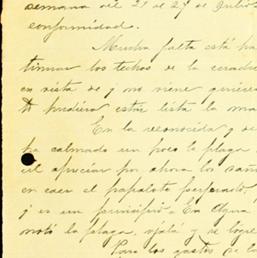 semana del 21 al 27 de Julio
conformidad.
Mucha falta está ha
tinuar los techos de la
en vista de q no viene
pudiera estar lista la ma
En la reconocida y de
ha calmado un poco la plaga
el apreciar por ahora los
en caer el papalote perforado,
y es un principio. En Agua
notó la plaga, ojalá y se logre
Para los gastos de la